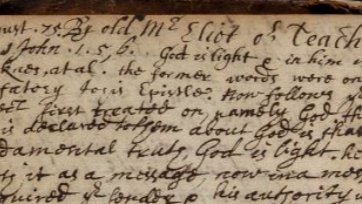 ust. 75. By old Mr Eliot oe Teach
s John. 1. 5, 6. God is light & in him i
knes, atal. the former words were on
factory to is Epistle. Now follows ye
first treated on, namely God, th
is declared to som about God is that
damental truth, God is light. he
ts it as a message now in a mes
quired ye sender & his authority